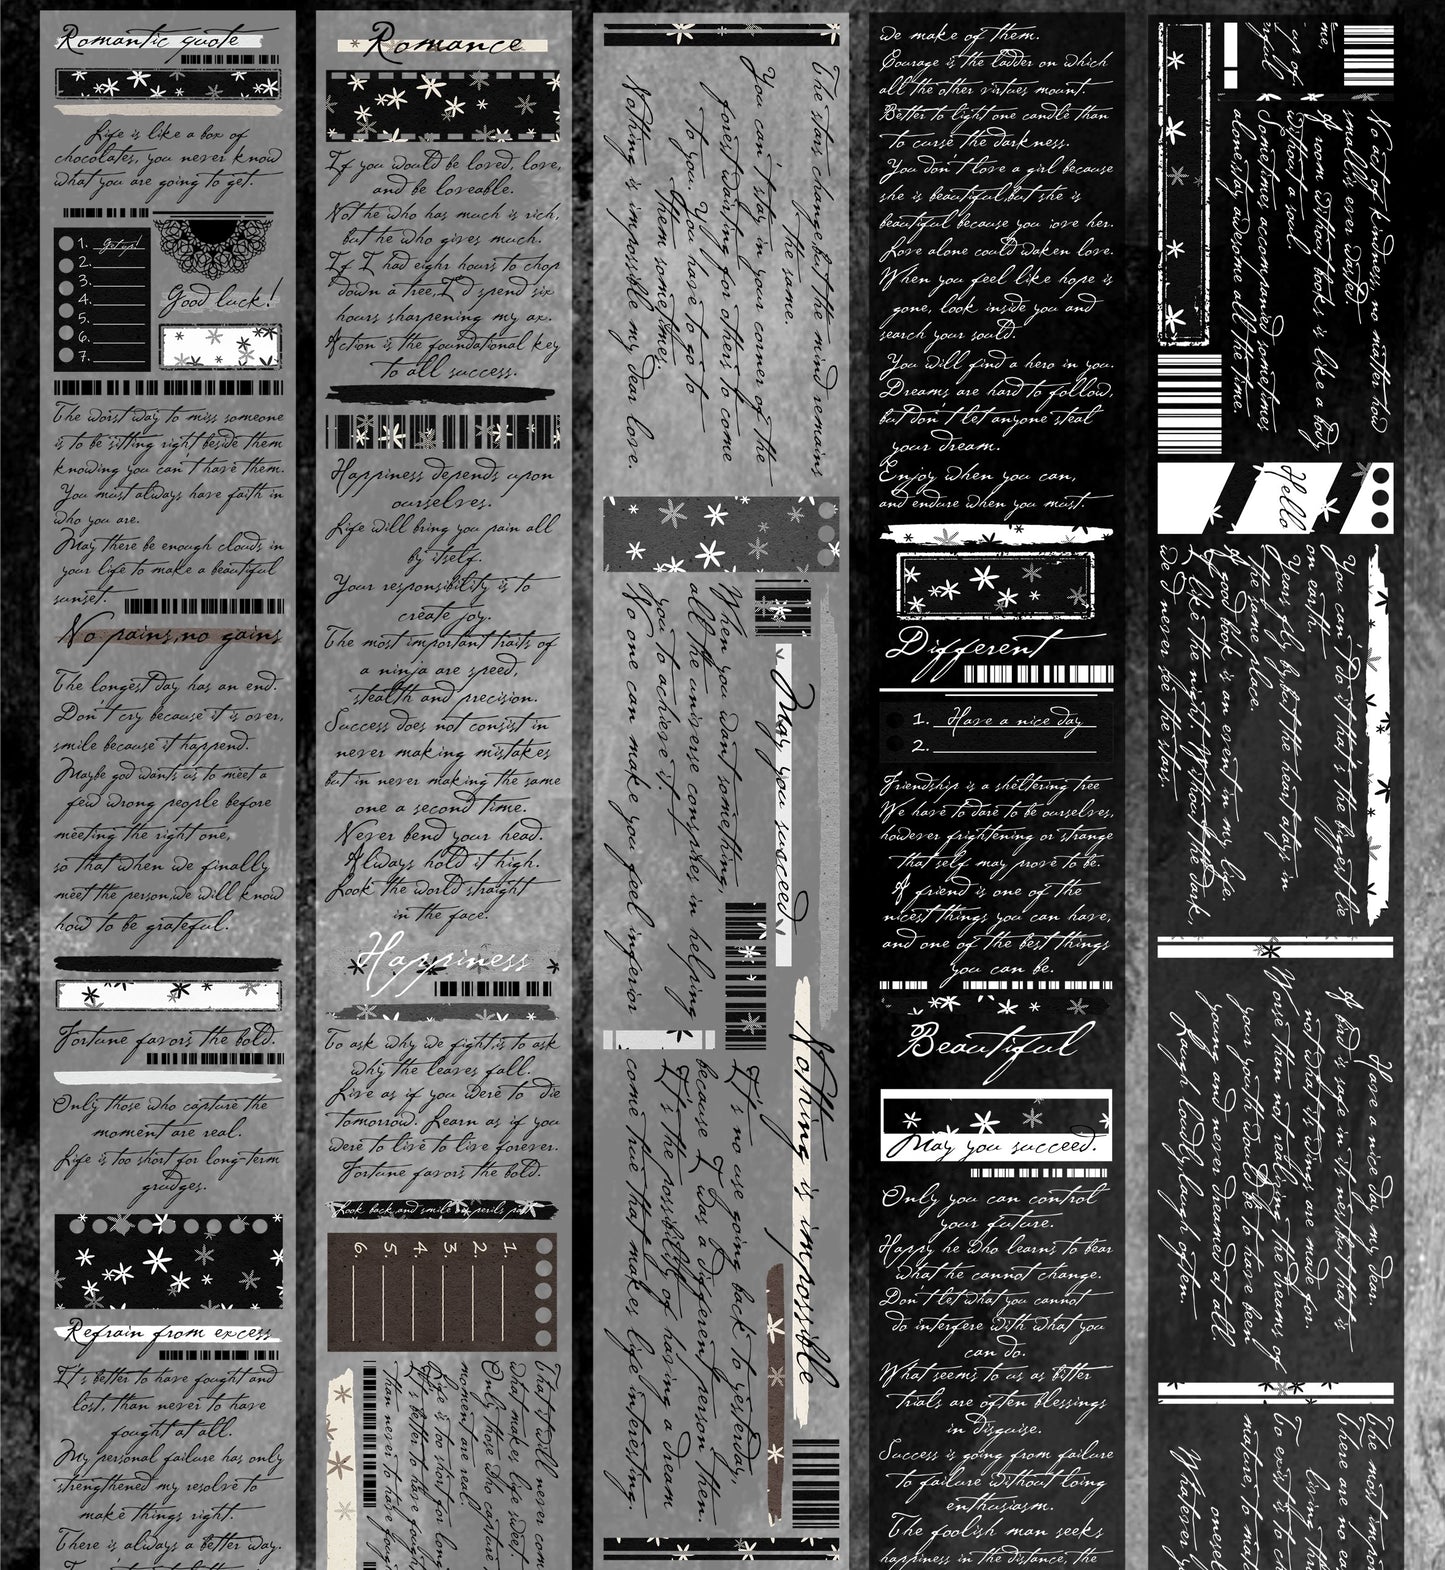 Romantic quote
Life is like a box of
chocolates, you never know
what you are going to get.
1. Get up!
2.
3.
4.
5.
6.
7.
Good luck!
The worst way to miss someone
is to be sitting right beside them
knowing you can't have them.
You must always have faith in
who you are.
May there be enough clouds in
your life to make a beautiful
sunset.
No pains,no gains
The longest day has an end.
Don't cry because it is over,
smile because it happend.
Maybe god wants us to meet a
few wrong people before
meeting the right one,
so that when we finally
meet the person,we will know
how to be grateful.
Fortune favors the bold.
Only those who capture the
moment are real.
Life is too short for long-term
grudges.
Refrain from excess
It's better to have fought and
lost, than never to have
fought at all.
My personal failure has only
strengthened my resolve to
make things right.
There is always a better way.
Romance
If you would be loved, love,
and be loveable.
Not he who has much is rich,
but he who gives much.
If I had eighr hours to chop
down a tree,I'd spend six
hours sharpening my ax.
Action is the foundational key
to all success.
Happiness depends upon
ourselves.
Life will bring you pain all
by itself.
Your responsibility is to
create joy.
The most important traits of
a ninja are speed,
stealth and precision.
Success does not consist in
never making mistakes
but in never making the same
one a second time.
Never bend your head.
Always hold it high.
Look the world straight
in the face.
Happiness
To ask why we fight,is to ask
why the leaves fall.
Live as if you were to die
tomorrow. Learn as if you
were to live to live forever.
Fortune favors the bold.
Look back and smile on perils past
1.
2.
3.
4.
5.
6.
That it will never come
what makes life sweet.
Only those who capture
moment are real
Life is too short for long
It's better to have fought
than never to have fough
The stars change,but the mind remains
the same.
You can't stay in your corner of the
forest waiting for others to come
to you. You have to go to
them sometimes.
Nothing is impossible my dear love.
May you succeed
When you want something,
all the universe conspires in helping
you to achieve it.
No one can make you feel inferior
Nothing is impossible
It's no use going back to yesterday,
because I was a different person then.
It's the possibility of having a dream
come true that makes life interesting.
we make of them.
Courage is the ladder on which
all the other virtues mount.
Better to light one candle than
to curse the darkness.
You don't love a girl because
she is beautiful,but she is
beautiful because you love her.
Love alone could waken love.
When you feel like hope is
gone, look inside you and
search your sould.
You will find a hero in you.
Dreams are hard to follow,
but don't let anyone steal
your dream.
Enjoy when you can,
and endure when you must.
Different
1. Have a nice day
2.
Friendship is a sheltering tree
We have to dare to be ourselves,
however frightening or strange
that self may prove to be.
A friend is one of the
nicest things you can have,
and one of the best things
you can be.
Beautiful
May you succeed.
Only you can control
your future.
Happy he who learns to bear
what he cannot change.
Don't let what you cannot
do interfere with what you
can do.
What seems to us as bitter
trials are often blessings
in disguise.
Success is going from failure
to failure without losing
enthusiasm.
The foolish man seeks
happiness in the distance, the
me.
up of
rful
No act of kindness, no matter how
small,is ever wasted.
A room without books is like a body
without a soul
Sometimes accompanied,sometimes
alone,stay awesome all the time.
Hello
You can't do it that's the biggest lie
on earth.
Years fly by,but the heart stays in
the same place.
A good book is an event in my life.
I like the night. Without the dark,
we'd never see the stars.
Have a nice day my dear.
A bird is safe in its nest-but that is
not what its wings are made for.
Worse than not realizing the dreams of
your youth would be to have been
young and never dreamed at all.
Laugh loudly, laugh often.
The most impor
There are no ea
living thr
To exist is to ch
mature, to mat
oneself
Whatever y